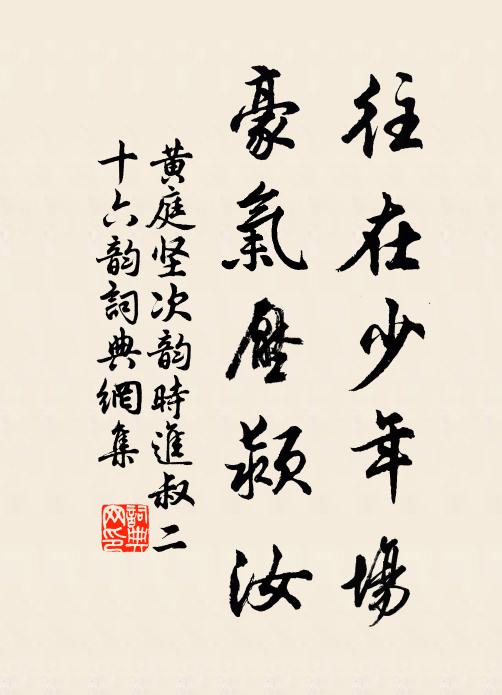 往在少年場
豪氣壓潁汝
黄庭坚次韵時進叔二
十六韵詞典網集
詞典网印